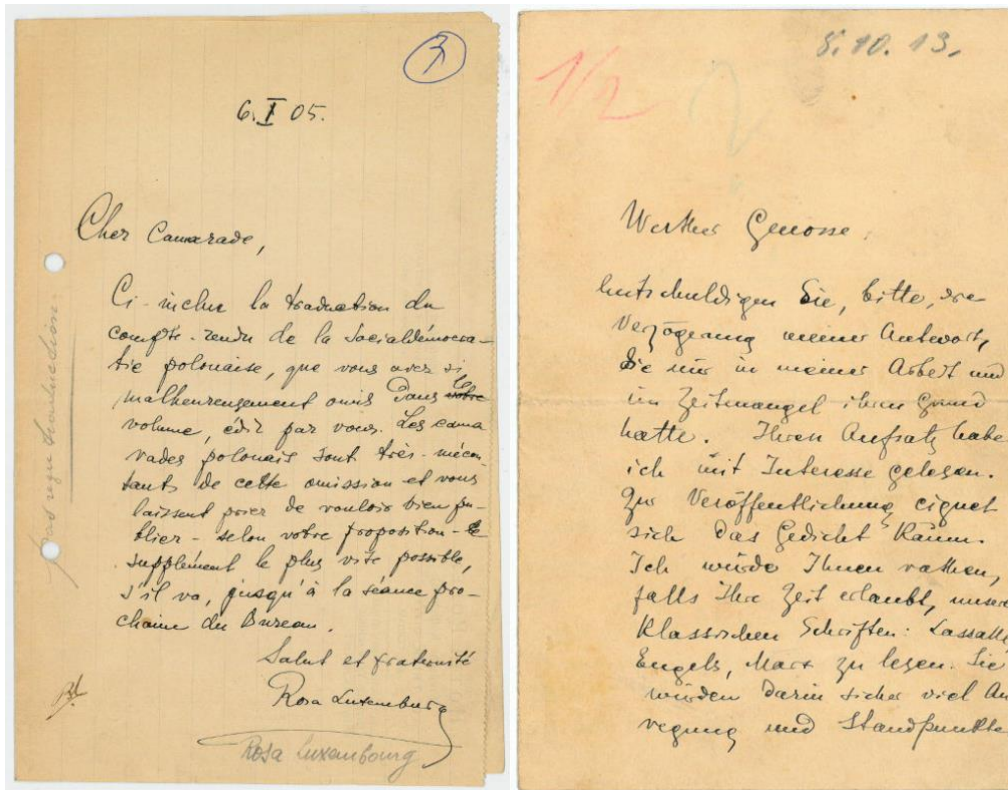 3
6. I 05.
Cher Camarade,
Ci-inclus la traduction du
compte-rendu de la Socialdémocra-
tie polonaise, que vous avez si
malheureusement omis dans le
volume, édit par vous. Les cama
rades polonais sont très-mécon-
tants de cette omission et vous
laissent prier de vouloir bien pu-
blier - selon votre proposition - le
supplément le plus vite possible,
s'il va, jusqu'à la séance pro-
chaine du Bureau.
Salut et fraternité
Rosa Luxemburg
Rosa Luxembourg
pas reçu traduction
8. 10. 13.
1/2
2
Werther Genosse,
Entschuldigen Sie, bitte, die
Verzögerung meiner Antwort,
die nur in meiner Arbeit und
im Zeitmangel ihren Grund
hatte. Ihren Aufsatz habe
ich mit Interesse gelesen.
Zur Veröffentlichung eignet
sich das Gedicht kaum.
Ich würde Ihnen rathen,
falls Ihre Zeit erlaubt, unsere
Klassischen Schriften: Lassalle
Engels, Marx zu lesen. Sie
würden darin sicher viel An
regung und Standpunkte